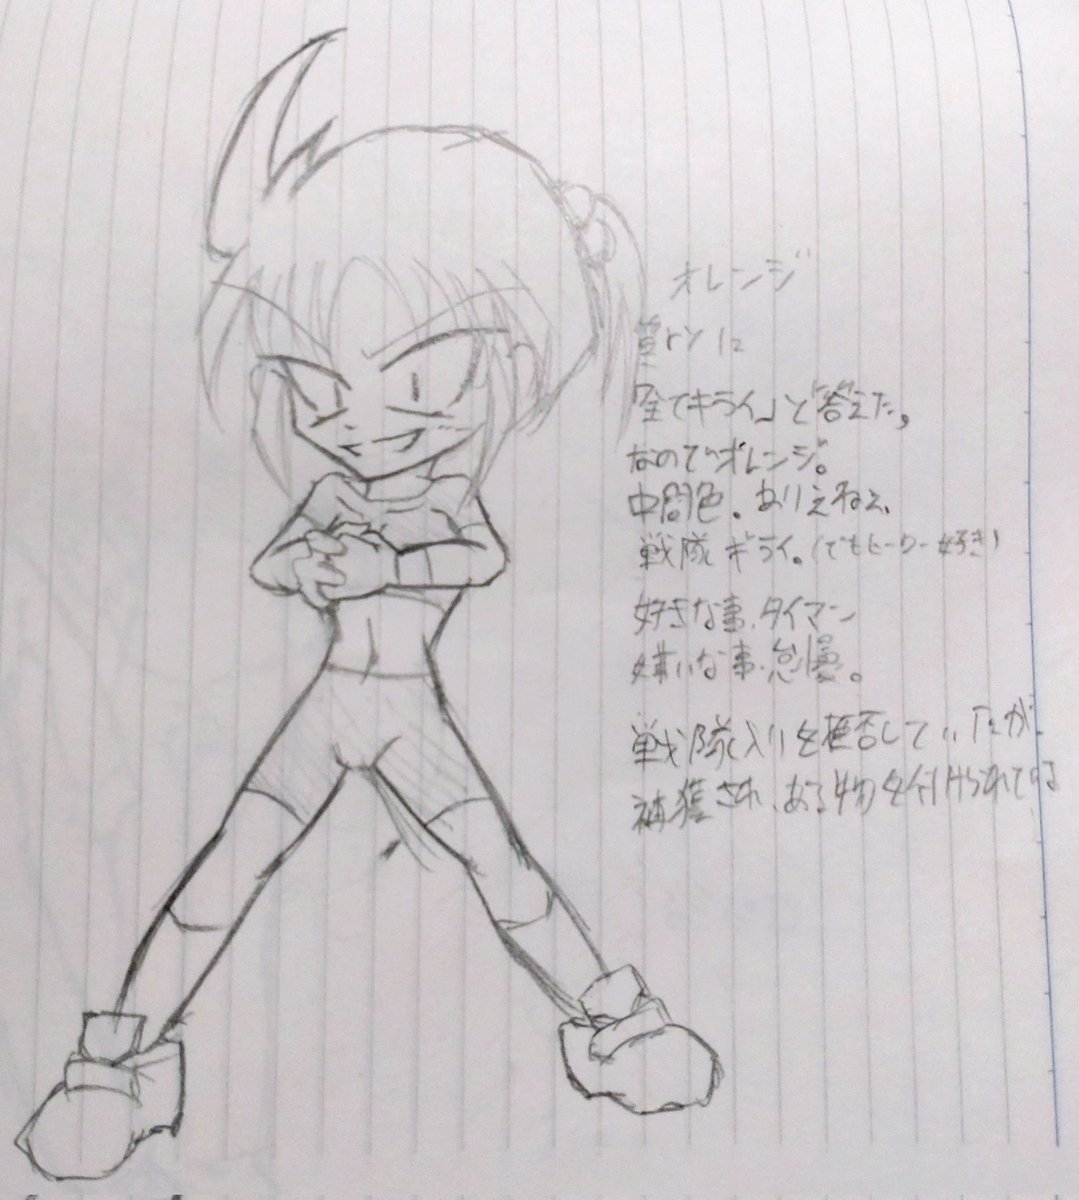 オレンジ
に
「全てキライ」と答えた。
なのでオレンジ。
中間色。ありえねぇ、
戦隊ギライ。(でもヒーロー好き)
好きな事、タイマン
嫌いな事、怠慢。
戦隊入りを拒否していたが、
捕獲され、ある物を付けられている